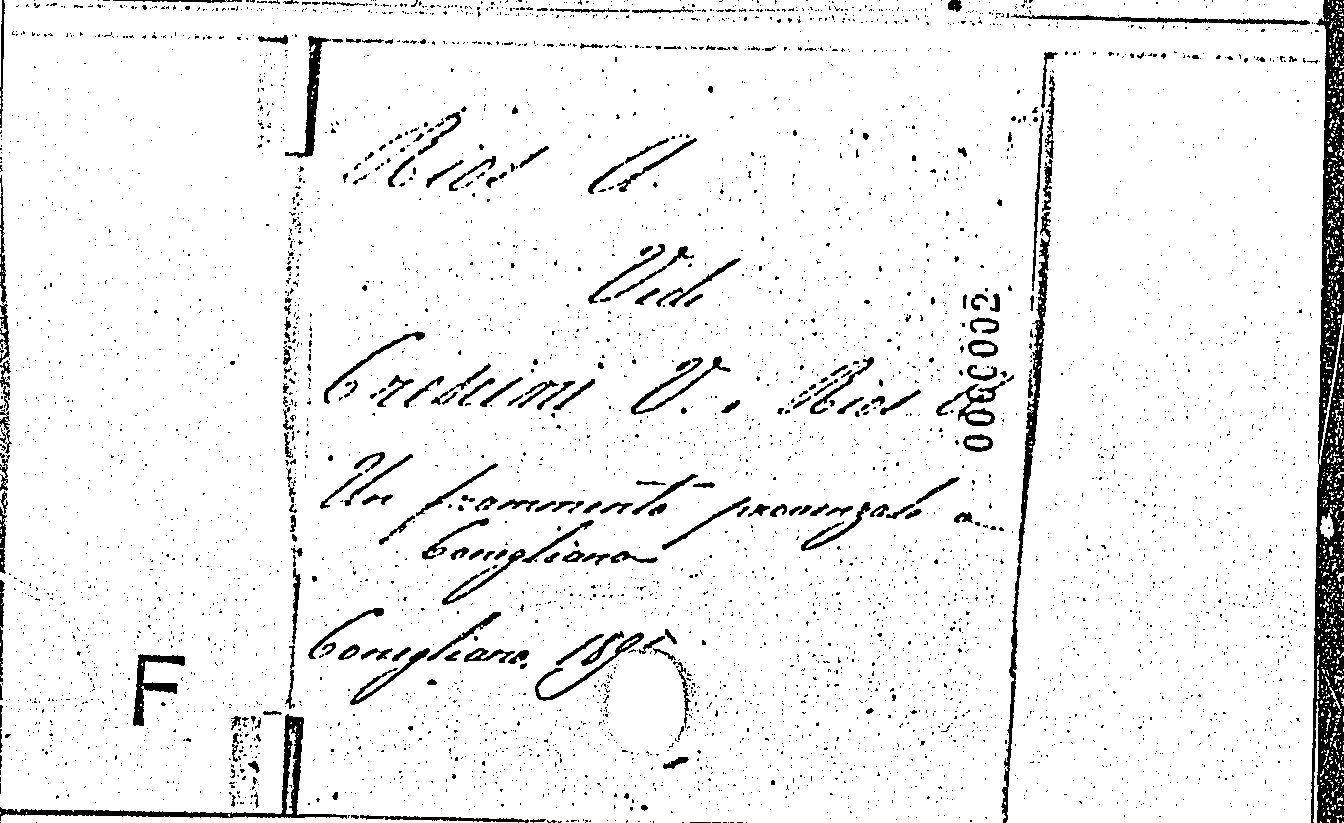 Rios A.
Vedi
Crescini V. e Rios A.
Un frammento provenzale a
Conegliano
Conegliano, 1895
0000002
F